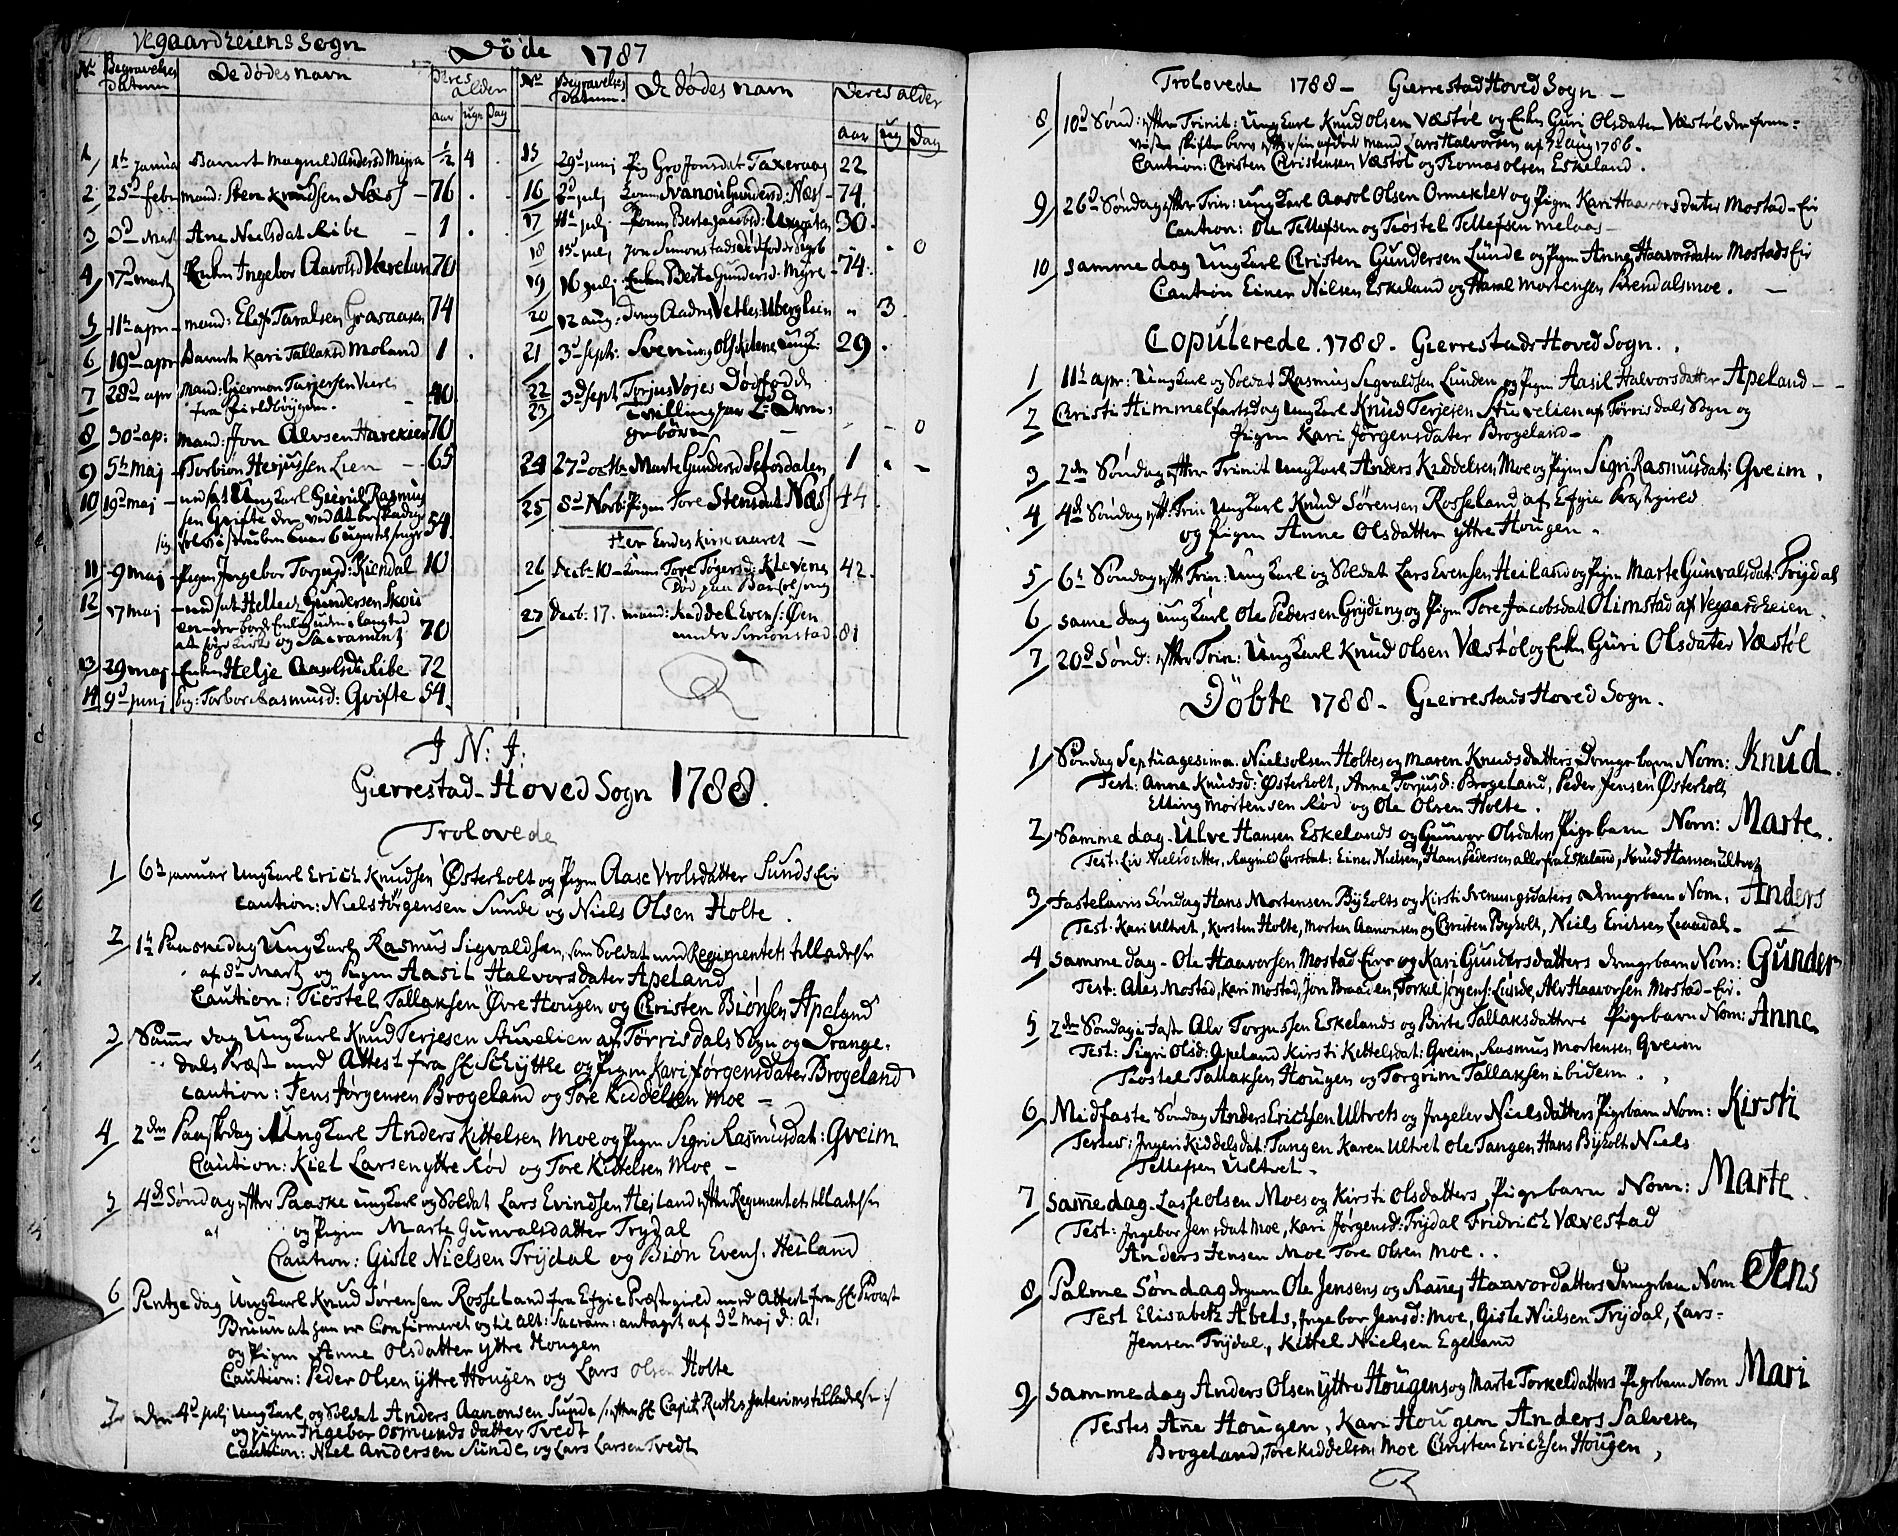 Vegaardheiens Sogn
Døde 1787
No Begravelses Datum De dødes navn Deres alder
aar ugr Dag
1 1t Januar Barnet Magnild Andersd Mÿra ½ 4
2 25d Febr mand: Sten Knudsen Næss 76
3 3d Mart Ane Nielsdat Ribe 1
4 17d mart Enken Ingebor Aavolsd 70
5 11t apr mand: Elef Taralsen Grasaasen 74
6 19d apr Barnet Kari Tallaksd Moland 1
7 28d apr mand: Giermon Tarjersen
fra 40
8 30d ap: mand: Jon Alvsen Havekier 70
9 5t maj Torbion Herjussen Lien 65
10 19d maj Ungkarl Gieruil Rasmus
sen Gvifte 54
11 9 maj Pigen Ingebor Torjusd: Kiendal 10
12 17 maj Hellech Gundersen Skori
70
13 29 maj Enken Helje Aasolsd Ribe 72
14 9d junj Tarbor Rasmusd: Gvifte 54
No Begravelses Datum De dødes navn Deres alder
aar ug Dag
15 29d junj Pig Gro Jonsdat Taxeraas 22
16 2d julj konen Svanoü Gundersd: Næs 74
17 11t julj konen Berte Jacobsd: 30
18 15d julj Jon Simonstads dødfødde 0
19 16 julj Enken Berte Gundersd: Myre 74
20 12 aug: dreng Aadne Vetles: Ubergheien 3
21 3d sept: Svenung Ols Kilene ungk: 29
22 3d sept Torjus Vojes Dødfødde
23 tvillinge par 2de Dren-
gebørn 0
24 27d octbr Marte Gundersd Selosdalen 1
25 8d Novb: Pigen Tore Stensdat Næss 44
Her Endes kirke aaret
26 Decb: 10 konen Tore Togersd: Klevene 42
Død paa Barselseng
27 Decb: 17. mand: Kiddel Evens: Øen
under Simonstad 81
I N: J:
Gierrestad Hoved Sogn 1788.
Trolovede
1 6t januar Ungkarl Erich Knudsen Østerholt og Pigen Aase Vrolsdatter Sunds Eir
Caution: Niels Jørgensen Sunde og Niels Olsen Holte.
2 1t Paaskedag Ungkarl Rasmus Sigvaldsen, som Soldat med Regimentets tilladelse
af 8d Martz og Pigen Aasil Halvorsdater Apeland
Caution: Tiøstel Tallaksen Øvre Hougen og Christen Biørnsen Apeland
3 Samme dag Ungkarl Knud Terjesen Stuvelien af Tørrisdals Sogn og Drange-
dals Præst: med Attest fra Hr Schÿtthe og Pigen Kari Jørgensdater Brogeland
Caution: Jens Jørgensen Brogeland og Tore Kiddelsen Moe
4 2den Paaskedag: Ungkarl Anders Kittelsen Moe og Pigen Sigri Rasmusdat: Gveim
Caution: Kiel Larsen ytre Rød og Tore Kittelsen Moe
5 4de Søndag efter Paaske ungkarl og Soldat Lars Evindsen Hejland efter Regimentets tilladelse
af og Pigen Marte Gunvalsdatter Trydal
Caution: Gisle Nielsen Trÿdal og Biøn Evens: Heiland
6 Pentze dag Ungkarl Knud Sørensen Rosseland fra Efgie Præstegield med Attest fra Hr Provst
Bruun at han er Confirmeret og til alt: Sacram: antaget af 3d Maj d: a:
og Pigen Anne Olsdatter yttre Hougen
Caution: Peder Olsen ÿttre Hougen og Lars Olsen Holte
7 den 4d julj Ungkarl og Soldat Anders Aanonsen Sunde /: efter Hr Capit Ruths Interimstilladelse :/
og pigen Ingebor Osmundsdatter Tvedt
Caution: Niel Andersen Sunde og Lars Larsen Tvedt
Trolovede 1788 - Gierrestad Hoved Sogn
8 10d Sønd: efter Trinit: Ungkarl Knud Olsen Væstøl og Enken Guri Olsdater Væstøl der frem-
viste skiftebrev efter sin afdøde mand Lars Halvorsen af 7d aug 1786.
Caution: Christen Christensen Væstøl og Thomas Olsen Eskeland.
9 26d Søndag efter Trin: ungkarl Aasol Olsen Ormeklev og Pigen Kari Haavorsdater Mostad-Eir
Caution: Ole Tellefsen og Tiøstel Tellefsen Melaas
10 samme dag Ungkarl Christen Gundersen Lunde og Pigen Anne Haavorsdater Mostads Eir
Caution Einer Nilsen Eskeland og Harel Mortensen Brendalsmoe.
Copulerede. 1788. Gierrestads Hoved Sogn.
1 11t apr: Ungkarl og Soldat Rasmus Segvaldsen Lunden og Pigen Aasil Halvorsdatter Apeland
2 Christi Himmelfartsdag ungkarl Knud Terjesen Stuvelien af Tørrisdals Sogn og
Pigen Kari Jørgensdater Brogeland
3 2den Søndag efter Trinit ungkarl Anders Kiddelsen Moe og Pigen Sigri Rasmusdat: Gveim.
4 4de Søndag eft: Trin Ungkarl Knud Sørensen Rosseland af Efgie Præstegield
og Pigen Anne Olsdatter yttre Hougen.
5 6t Søndag eft Trin: Ungkarl og Soldat Lars Evensen Heiland og Pigen Marte Gunvalsdat: Trÿdal
6 samme dag ungkarl Ole Pedersen Grÿding og Pigen Tore Jacobsdat Olimstad af Vegaardheien
7 20d Sønd: efter Trin: Ungkarl Knud Olsen Væstøl og Enken Guri Olsdater Væstøl
Døbte 1788 - Gierrestads Hoved Sogn.
1 Søndag Septuagesima. Niels Olsen Holtes og Maren Knudsdatters Drengebarn Nom: Knud.
Test. Anne Knudsd: Østerholt, Anne Torjusd: Brogeland, Peder Jensen Østerholt
Elling Mortensen Rød og Ole Olsen Holte.
2 Samme dag. Ulve Hansen Eskelands og Gunvor Olsdaters Pigebarn Nom: Marte.
Test: Liv Nielsdatter, Ragnild Larsdat: Einer Nielsen, Hans Pedersen alle fra Eskeland, Knud Hansen Ultvet
3 Fastelavns Søndag Hans Mortensen Bÿholts og Kirsti Svenungsdaters Drengebarn Nom. Anders
Test. Kari Ultvet, Kirsten Holte, Morten Aanonsen og Christen Bÿholt, Niels Ericksen Levedal
4 samme dag - Ole Haavorsen Mostad Eirs og Kari Gundersdatters drengebarn Nom: Gunder
Test: Ales Mostad, Kari Mostad, Jon Braaden, Torkel Jørgens: Lunde, Alv Haavorsen Mostad-Eir.
5 2den Søndag i Faste Alv Torjussen Eskelands og Birte Tallaksdatters Pigebarn Nom: Anne
Test: Sigri Olsd: Apeland Kirsti Kittelsdat: Gveim, Rasmus Mortensen Gveim
Tiøstel Tallaksen Hougen og Torgrim Tallaksen ibidem.
6 Midfaste Søndag Anders Ericksen Ultvets og Ingeler Nielsdatters Pigebarn Nom: Kirsti
Testes: Ingeri Kiddelsdat: Tangen Karen Ultvet Ole Tangen Hans Bÿholt Niels
Tellefsen Ultvet.
7 samme dag. Lasse Olsen Moes og Kirsti Olsdatters Pigebarn Nom: Marte.
Test: Ingebor Jensdat Moe, Kari Jørgensd: Trÿdal Fridrich Vævestad
Anders Jensen Moe Tore Olsen Moe.
8 Palme Søndag Ole Jensens og Ranej Haavordatters Drengebarn Nom Jens
Test Elisabeth Abels, Ingebor Jensd: Moe, Gisle Nielsen Trÿdal, Lars
Jensen Trÿdal, Kittel Nielsen Egeland
9 samme dag Anders Olsen ÿttre Hougens og Marte Torkeldatters Pigebarn Nom Mari
Testes Ane Hougen, Kari Hougen Anders Salvesen
Brogeland, Tore Kiddelsen Moe Christen Ericksen Hougen,